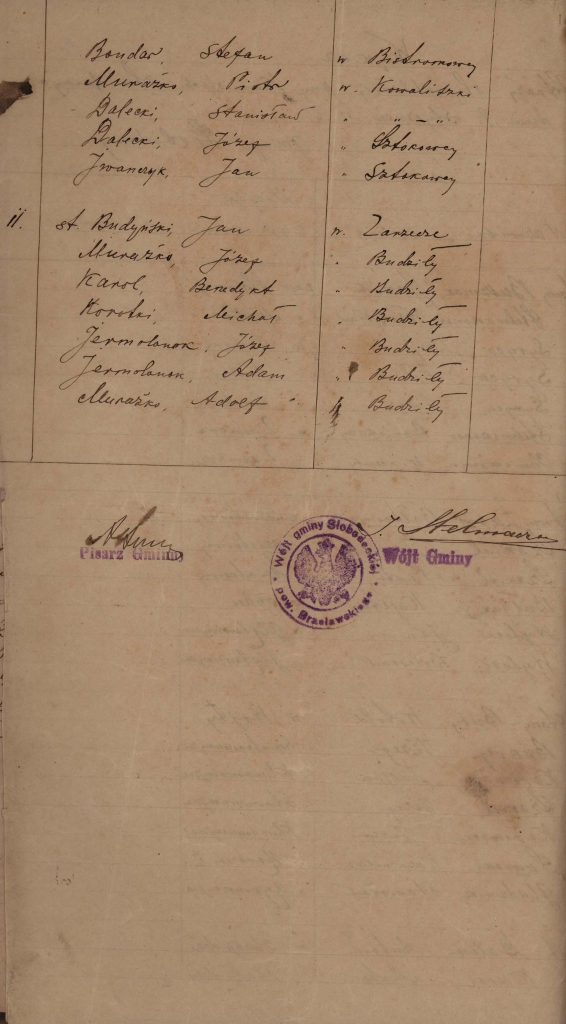 Bondar, Stefan w Bistromowcy
Muraźko, Piotr w. Kowaliszki
Dalecki, Stanisław " " — "
Dalecki, Józef " Sztokowcy
Jwanczyk, Jan " Sztokowcy
11. st. Budyński, Jan w. Zarzecze
Muraźko, Józef " Budziły
Karol, Benedykt " Budziły
Korotki, Michał " Budziły
Jermolonok, Józef " Budziły
Jermolonok, Adam " Budziły
Muraźko, Adolf " Budziły
Pisarz Gminy
Wójt gminy Słobodzkiej
pow. Brasławskiego
J. Stelmaszu
Wójt Gminy